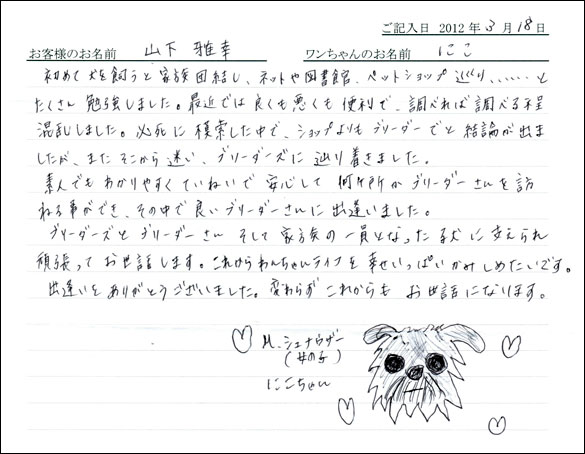 ご記入日 2012年3月18日
お客様のお名前 山下 雅幸 ワンちゃんのお名前 にこ
初めて犬を飼うと家族団結し、ネットや図書館、ペットショップ巡り、・・・・・と
たくさん勉強しました。最近では良くも悪くも便利で、調べれば調べる程
混乱しました。必死に模索した中で、ショップよりもブリーダーでと結論が出ま
したが、またそこから迷い、ブリーダーズに辿り着きました。
素人でもわかりやすくていねいで安心して何ヶ所かブリーダーさんを訪
ねる事ができ、その中で良いブリーダーさんに出逢いました。
ブリーダーズとブリーダーさんそして家族の一員となった子犬に支えられ
頑張ってお世話します。これからわんちゃんライフを幸せいっぱいかみしめたいです。
出逢いをありがとうございました。変わらずこれからもお世話になります。
M.シュナウザー
(女の子)
にこちゃん